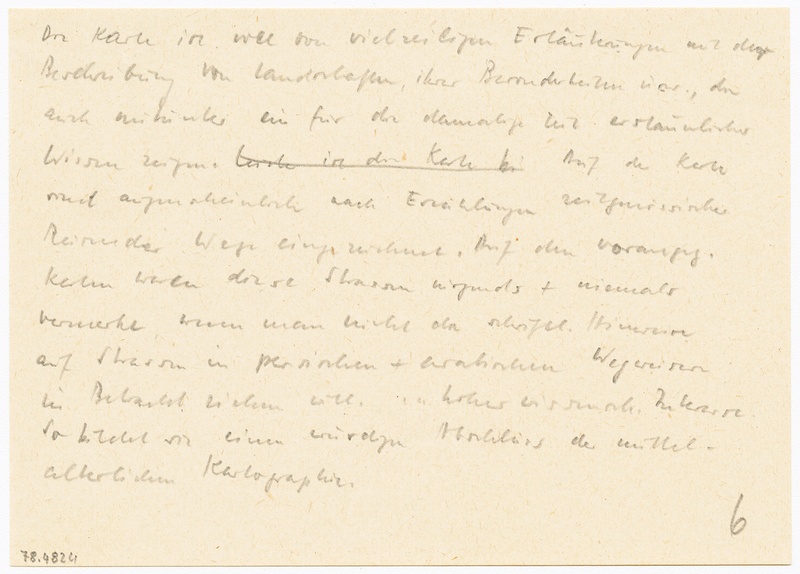 Die Karte ist voll von vielzeiligen Erläuterungen mit der
Beschreibung von Landschaften, ihrer Besonderheiten usw., die
auch mitunter ein für die damalige Zeit erstaunliches
Wissen zeigen. ist die Karte Auf der Karte
sind augenscheinlich nach Erzählungen zeitgenössischer
Reisender Wege eingezeichnet. Auf den vorangeg.
Karten waren diese Strassen nirgends + niemals
vermerkt, wenn man nicht die schriftl. Hinweise
auf Strassen in persischen + arabischen Wegweisern
in Betracht ziehen will. hohes wissensch. Interesse.
So bildet sie einen würdigen Abschluss der mittel-
alterlichen Kartographie.
6
78.4824